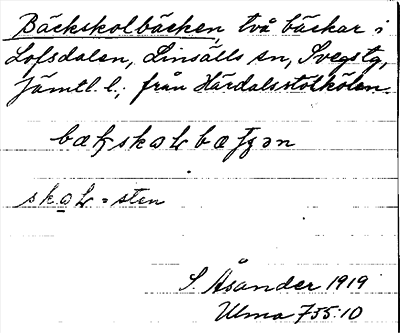 Bäckskolbäcken, två bäckar i
Lofsdalen, Linsälls sn, Svegs tg,
Jämtl. l.; från Härdalsstolkölen.
skaɫ = sten
S. Åsander 1919
Ulma 755:10